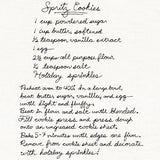 Spritz Cookies
1 cup powdered sugar
1 cup butter, softened
½ teaspoon vanilla extract
1 egg
2½ cups all purpose flour
¼ teaspoon salt
Holiday sprinkles
Preheat oven to 400. In a large bowl,
beat butter, sugar, vanilla, and egg
until light and fluffy.
Beat in flour and salt until blended.
Fill cookie press and press dough
onto an ungreased cookie sheet.
Bake 5-7 minutes until edges are firm.
Remove from cookie sheet and decorate
with holiday sprinkles!